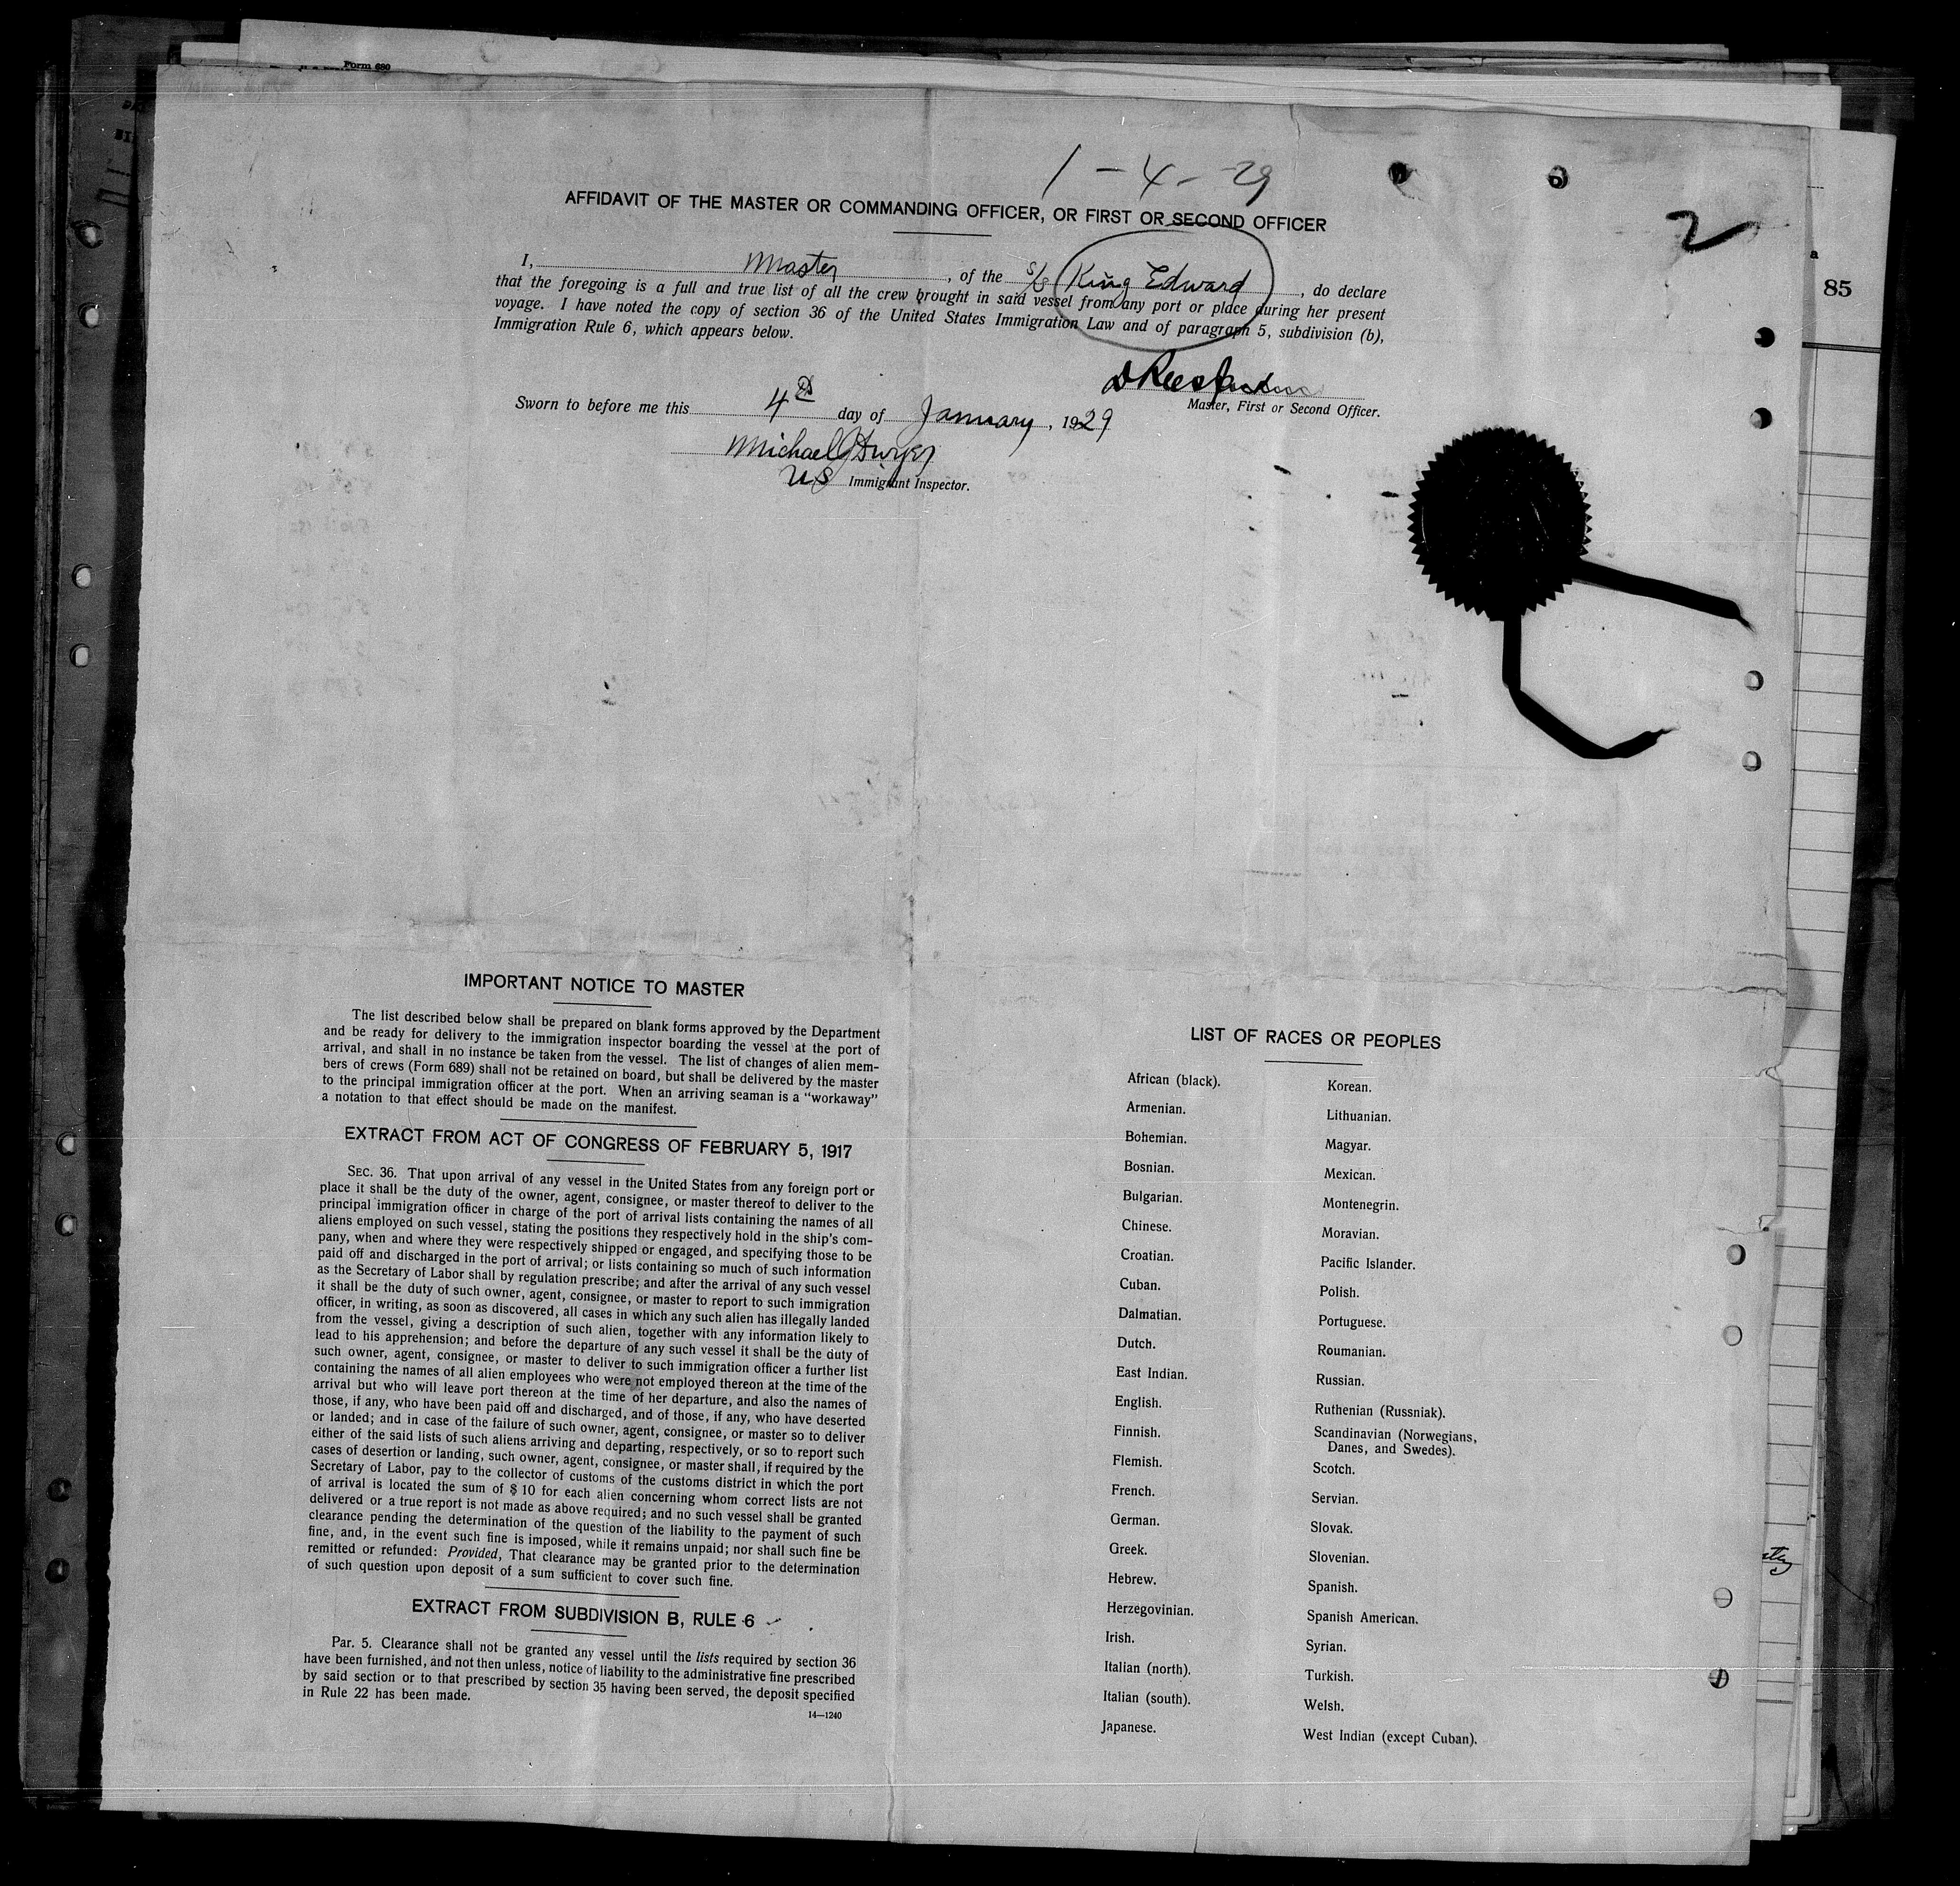 Form 680
1-4-29
2
85
AFFIDAVIT OF THE MASTER OR COMMANDING OFFICER, OR FIRST OR SECOND OFFICER
I, Master, of the S/S King Edward, do declare
that the foregoing is a full and true list of all the crew brought in said vessel from any port or place during her present
voyage. I have noted the copy of section 36 of the United States Immigration Law and of paragraph 5, subdivision (b),
Immigration Rule 6, which appears below.
Master, First or Second Officer.
Sworn to before me this 4th day of January, 1929
Michael J Dwyer
US Immigrant Inspector.
IMPORTANT NOTICE TO MASTER
The list described below shall be prepared on blank forms approved by the Department
and be ready for delivery to the immigration inspector boarding the vessel at the port of
arrival, and shall in no instance be taken from the vessel. The list of changes of alien mem-
bers of crews (Form 689) shall not be retained on board, but shall be delivered by the master
to the principal immigration officer at the port. When an arriving seaman is a "workaway"
a notation to that effect should be made on the manifest.
EXTRACT FROM ACT OF CONGRESS OF FEBRUARY 5, 1917
SEC. 36. That upon arrival of any vessel in the United States from any foreign port or
place it shall be the duty of the owner, agent, consignee, or master thereof to deliver to the
principal immigration officer in charge of the port of arrival lists containing the names of all
aliens employed on such vessel, stating the positions they respectively hold in the ship's com-
pany, when and where they were respectively shipped or engaged, and specifying those to be
paid off and discharged in the port of arrival; or lists containing so much of such information
as the Secretary of Labor shall by regulation prescribe; and after the arrival of any such vessel
it shall be the duty of such owner, agent, consignee, or master to report to such immigration
officer, in writing, as soon as discovered, all cases in which any such alien has illegally landed
from the vessel, giving a description of such alien, together with any information likely to
lead to his apprehension; and before the departure of any such vessel it shall be the duty of
such owner, agent, consignee, or master to deliver to such immigration officer a further list
containing the names of all alien employees who were not employed thereon at the time of the
arrival but who will leave port thereon at the time of her departure, and also the names of
those, if any, who have been paid off and discharged, and of those, if any, who have deserted
or landed; and in case of the failure of such owner, agent, consignee, or master so to deliver
either of the said lists of such aliens arriving and departing, respectively, or so to report such
cases of desertion or landing, such owner, agent, consignee, or master shall, if required by the
Secretary of Labor, pay to the collector of customs of the customs district in which the port
of arrival is located the sum of $10 for each alien concerning whom correct lists are not
delivered or a true report is not made as above required; and no such vessel shall be granted
clearance pending the determination of the question of the liability to the payment of such
fine, and, in the event such fine is imposed, while it remains unpaid; nor shall such fine be
remitted or refunded: Provided, That clearance may be granted prior to the determination
of such question upon deposit of a sum sufficient to cover such fine.
EXTRACT FROM SUBDIVISION B, RULE 6
Par. 5. Clearance shall not be granted any vessel until the lists required by section 36
have been furnished, and not then unless, notice of liability to the administrative fine prescribed
by said section or to that prescribed by section 35 having been served, the deposit specified
in Rule 22 has been made.
14—1240
LIST OF RACES OR PEOPLES
African (black).
Armenian.
Bohemian.
Bosnian.
Bulgarian.
Chinese.
Croatian.
Cuban.
Dalmatian.
Dutch.
East Indian.
English.
Finnish.
Flemish.
French.
German.
Greek.
Hebrew.
Herzegovinian.
Irish.
Italian (north).
Italian (south).
Japanese.
Korean.
Lithuanian.
Magyar.
Mexican.
Montenegrin.
Moravian.
Pacific Islander.
Polish.
Portuguese.
Roumanian.
Russian.
Ruthenian (Russniak).
Scandinavian (Norwegians,
Danes, and Swedes).
Scotch.
Servian.
Slovak.
Slovenian.
Spanish.
Spanish American.
Syrian.
Turkish.
Welsh.
West Indian (except Cuban).